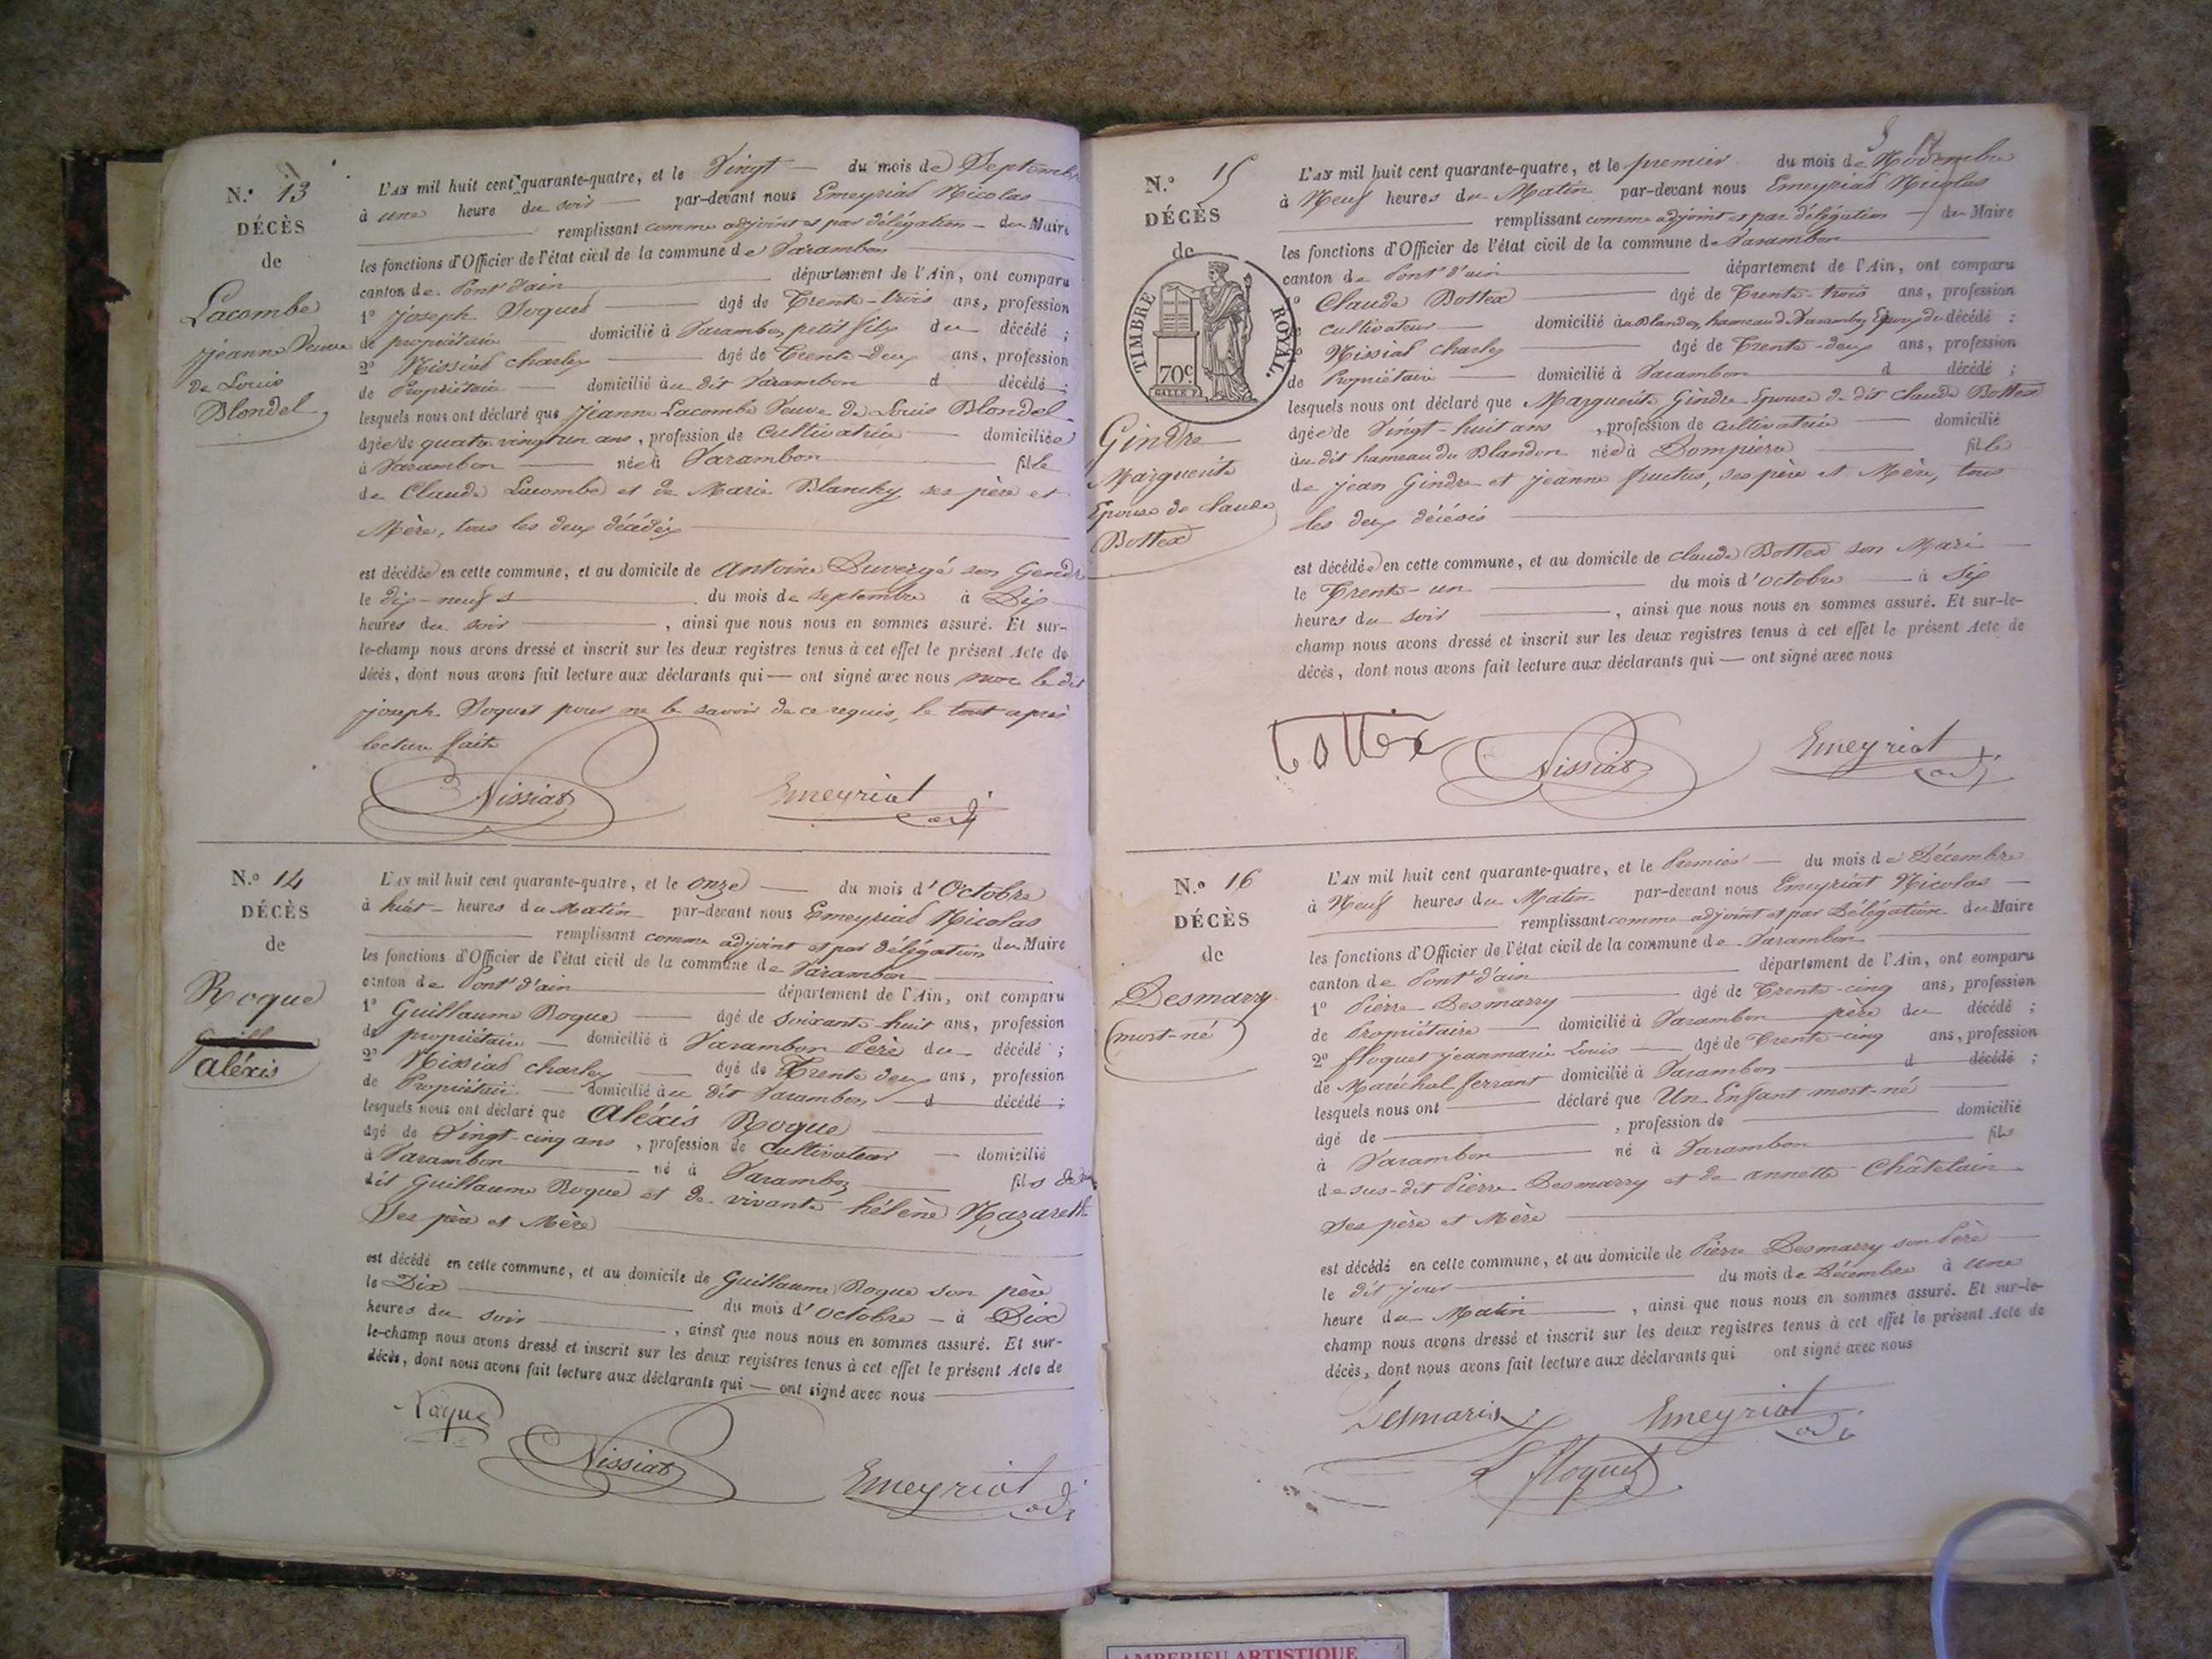 N.° 13
DÉCÈS
de
Lacombe
Jeanne Veuve
de Louis
Blondel
L'AN mil huit cent quarante-quatre, et le Vingt du mois de Septembre
à une heure du soir par-devant nous Emeyriat Nicolas
remplissant comme adjoint et par délégation du Maire
les fonctions d'Officier de l'état civil de la commune de Varambon
canton de Pont d'ain département de l'Ain, ont comparu
1° Joseph Voquet âgé de Trente-trois ans, profession
de propriétaire domicilié à Varambon, petit fils du décédé ;
2° Nissiat Charles âgé de Trente-deux ans, profession
de Propriétaire domicilié au dit Varambon d décédé ;
lesquels nous ont déclaré que Jeanne Lacombe Veuve de Louis Blondel
âgée de quatre vingt un ans, profession de Cultivatrice domiciliée
à Varambon née à Varambon fille
de Claude Lacombe et de Marie Blanchy ses père et
Mère, tous les deux décédés
est décédée en cette commune, et au domicile de Antoine Duvergé son Gendre
le dix-neuf du mois de Septembre à Dix
heures du soir, ainsi que nous nous en sommes assuré. Et sur-
le-champ nous avons dressé et inscrit sur les deux registres tenus à cet effet le présent Acte de
décès, dont nous avons fait lecture aux déclarants qui — ont signé avec nous non le dit
Joseph Voquet pour ne le savoir de ce requis, le tout après
lecture faite
Nissiat Emeyriat adj
N.° 14
DÉCÈS
de
Roque
aléxis
L'AN mil huit cent quarante-quatre, et le onze du mois d'Octobre
à huit heures du Matin par-devant nous Emeyriat Nicolas
remplissant comme adjoint et par délégation du Maire
les fonctions d'Officier de l'état civil de la commune de Varambon
canton de Pont d'ain département de l'Ain, ont comparu
1° Guillaume Roque âgé de Soixante-huit ans, profession
de propriétaire domicilié à Varambon Père du décédé ;
2° Nissiat Charles âgé de Trente deux ans, profession
de Propriétaire domicilié au dit Varambon d décédé ;
lesquels nous ont déclaré que Aléxis Roque
âgé de Vingt-cinq ans, profession de Cultivateur domicilié
à Varambon né à Varambon fils
dit Guillaume Roque et de vivante hélène Nazareth
Ses père et Mère
est décédé en cette commune, et au domicile de Guillaume Roque son père
le Dix du mois d'Octobre à Dix
heures du soir, ainsi que nous nous en sommes assuré. Et sur-
le-champ nous avons dressé et inscrit sur les deux registres tenus à cet effet le présent Acte de
décès, dont nous avons fait lecture aux déclarants qui — ont signé avec nous
Roque Nissiat Emeyriat adj
N.° 15
DÉCÈS
de
TIMBRE ROYAL.
70c
Gindre
Marguerite
Epouse de Claude
Bottex
L'AN mil huit cent quarante-quatre, et le premier du mois de Novembre
à Neuf heures du Matin par-devant nous Emeyriat Nicolas
remplissant comme adjoint et par délégation du Maire
les fonctions d'Officier de l'état civil de la commune de Varambon
canton de Pont d'ain département de l'Ain, ont comparu
1° Claude Bottex âgé de Trente-trois ans, profession
cultivateur domicilié au Blandon, hameau de Varambon Epoux du décédé ;
2° Nissiat Charles âgé de Trente-deux ans, profession
de Propriétaire domicilié à Varambon d décédé ;
lesquels nous ont déclaré que Marguerite Gindre Epouse du dit Claude Bottex
âgée de Vingt-huit ans, profession de Cultivatrice domicilié
au dit hameau du Blandon née à Dompierre fille
de Jean Gindre et Jeanne fructus, ses père et Mère, tous
les deux décésés
est décédée en cette commune, et au domicile de Claude Bottex son Mari
le Trente-un du mois d'Octobre à Six
heures du Soir, ainsi que nous nous en sommes assuré. Et sur-le-
champ nous avons dressé et inscrit sur les deux registres tenus à cet effet le présent Acte de
décès, dont nous avons fait lecture aux déclarants qui — ont signé avec nous
bottex Nissiat Emeyriat adj
N.° 16
DÉCÈS
de
Desmarry
(mort-né)
L'AN mil huit cent quarante-quatre, et le Premier du mois de Décembre
à Neuf heures du Matin par-devant nous Emeyriat Nicolas
remplissant comme adjoint et par Délégation du Maire
les fonctions d'Officier de l'état civil de la commune de Varambon
canton de Pont d'ain département de l'Ain, ont comparu
1° Pierre Desmarry âgé de Trente-cinq ans, profession
de Propriétaire domicilié à Varambon père du décédé ;
2° floquet jeanmarie Louis âgé de Trente-cinq ans, profession
de Maréchal ferrant domicilié à Varambon d décédé ;
lesquels nous ont déclaré que Un Enfant mort-né
âgé de , profession de domicilié
à Varambon né à Varambon fils
de sus-dit Pierre Desmarry et de annette Châtelain
Ses père et Mère
est décédé en cette commune, et au domicile de Pierre Desmarry son Père
le dit jour du mois de Décembre à une
heure du Matin, ainsi que nous nous en sommes assuré. Et sur-le-
champ nous avons dressé et inscrit sur les deux registres tenus à cet effet le présent Acte de
décès, dont nous avons fait lecture aux déclarants qui ont signé avec nous
Desmaris Emeyriat adj
L floquet
AMBERIEU ARTISTIQUE